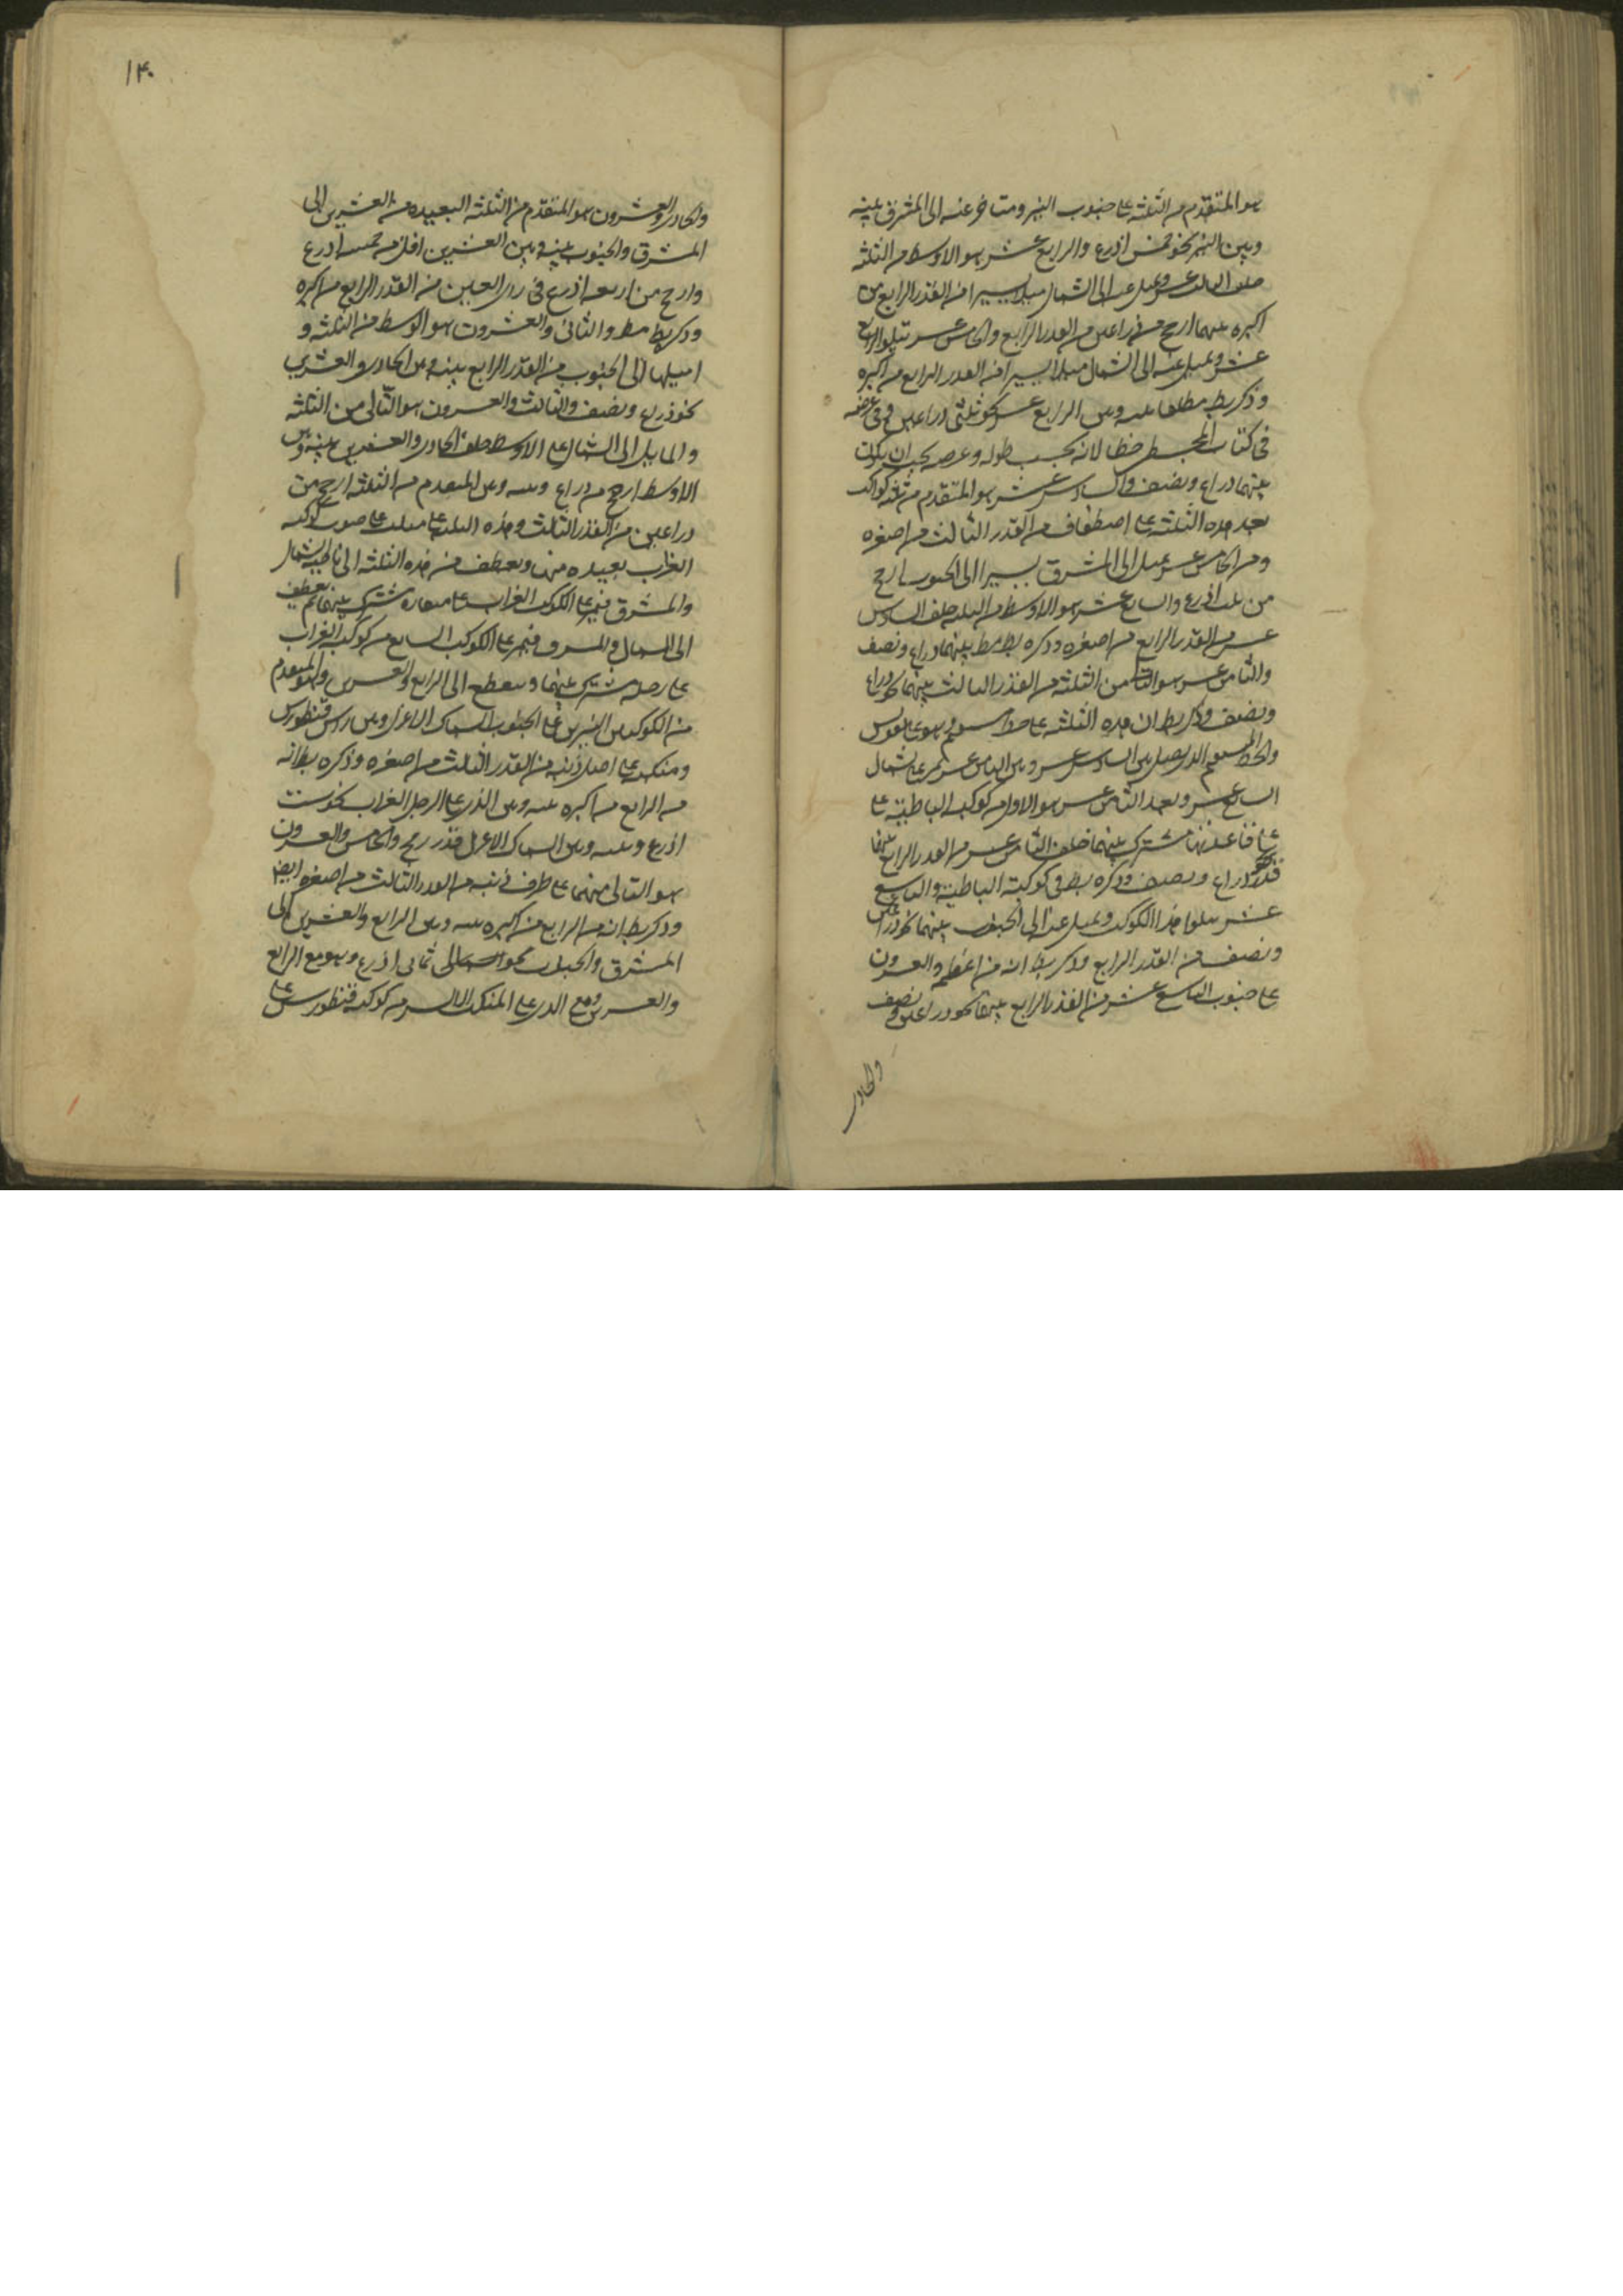 هو المتقدم من الثلثة على جنوب النير ومتاخر عنه الى المشرق بينه
وبين النير نحو خمس اذرع والرابع عشر هو الاوسط من الثلثة
خلف الثالث عشر ويميل عنه الى الشمال ميلا يسيرا من القدر الرابع من
اكبره بينهما ارجح من ذراعين من القدر الرابع والخامس عشر يتلو الرابع
عشر ويميل عنه الى الشمال ميلا يسيرا من القدر الرابع من اكبره
وذكر بط مطلقا بينه وبين الرابع عشر نحو ثلثى ذراعين وفى عرضه
فى كتاب المجسطى خطا لانه بحسب طوله وعرضه يجب ان يكون
بينهما ذراع ونصف والسادس عشر هو المتقدم من ثلثة كواكب
بعد هذه الثلثة على اصطفاف من القدر الثالث من اصغره
ومن الخامس عشر يميل الى المشرق يسيرا الى الجنوب ارجح
من ثلث اذرع والسابع عشر هو الاوسط من الثلثة خلف السادس
عشر من القدر الرابع من اصغره وذكره بط مط بينهما ذراع ونصف
والثامن عشر هو التالى من الثلثة من القدر الثالث بينهما نحو ذراع
ونصف وذكر بط ان هذه الثلثة على خط مستقيم وهو على تقويس
والخط المستقيم الذى يصل بين السادس عشر وبين الثامن عشر يمر على شمال
السابع عشر وبعد الثامن عشر هو الاول من كوكبة الباطية على
قاعدتها مشترك بينهما خلف الثامن عشر من القدر الرابع بينهما
قدر ذراع ونصف وذكره بط فى كوكبة الباطية والتاسع
عشر يتلو هذا الكوكب ويميل عنه الى الجنوب بينهما نحو ذراعين
ونصف من القدر الرابع وذكر بط انه من اعظمه والعشرون
على جنوب التاسع عشر من القدر الرابع بينهما نحو ذراعين ونصف
والحادى
١٤٠
والحادى والعشرون هو المتقدم من الثلثة البعيدة من العشرين الى
المشرق والجنوب بينه وبين العشرين اقل من خمسة اذرع
وارجح من اربعة اذرع فى راى العين من القدر الرابع من اكبره
وذكر بط مط والثانى والعشرون هو الاوسط من الثلثة و
اميلها الى الجنوب من القدر الرابع بينه وبين الحادى والعشرين
نحو ذراع ونصف والثالث والعشرون هو التالى من الثلثة
والمايل الى الشمال على الاوسط خلف الحادى والعشرين بينه وبين
الاوسط ارجح من ذراع وبينه وبين المتقدم من الثلثة ارجح من
ذراعين من القدر الثالث وهذه الثلثة على مثلث على جنوب كوكبة
الغراب بعيدة منها ويعطف من هذه الثلثة الى ناحية الشمال
والمشرق فيمر على الكوكب الغراب على منقاره مشترك بينهما ثم يعطف
الى الشمال والمشرق فيمر على الكوكب السابع من كوكبة الغراب
على رجله مشترك بينهما وينعطف الى الرابع والعشرين وهو المتقدم
من الكوكبين النيرين على الجنوب السماك الاعزل وبين راس قنطورس
ومنكبه على اصل ذنبه من القدر الثالث من اصغره وذكره بط انه
من الرابع من اكبره بينه وبين الذى على الرجل الغراب نحو ست
اذرع وبينه وبين السماك الاعزل قدر رمح والخامس والعشرون
هو التالى منهما على طرف ذنبه من القدر الثالث من اصغره ايضا
وذكر بط انه من الرابع من اكبره بينه وبين الرابع والعشرين الى
المشرق والجنوب نحو ثمانى اذرع وهو مع الرابع
والعشرين ومع الذى على المنكب الايسر من كوكبة قنطورس على